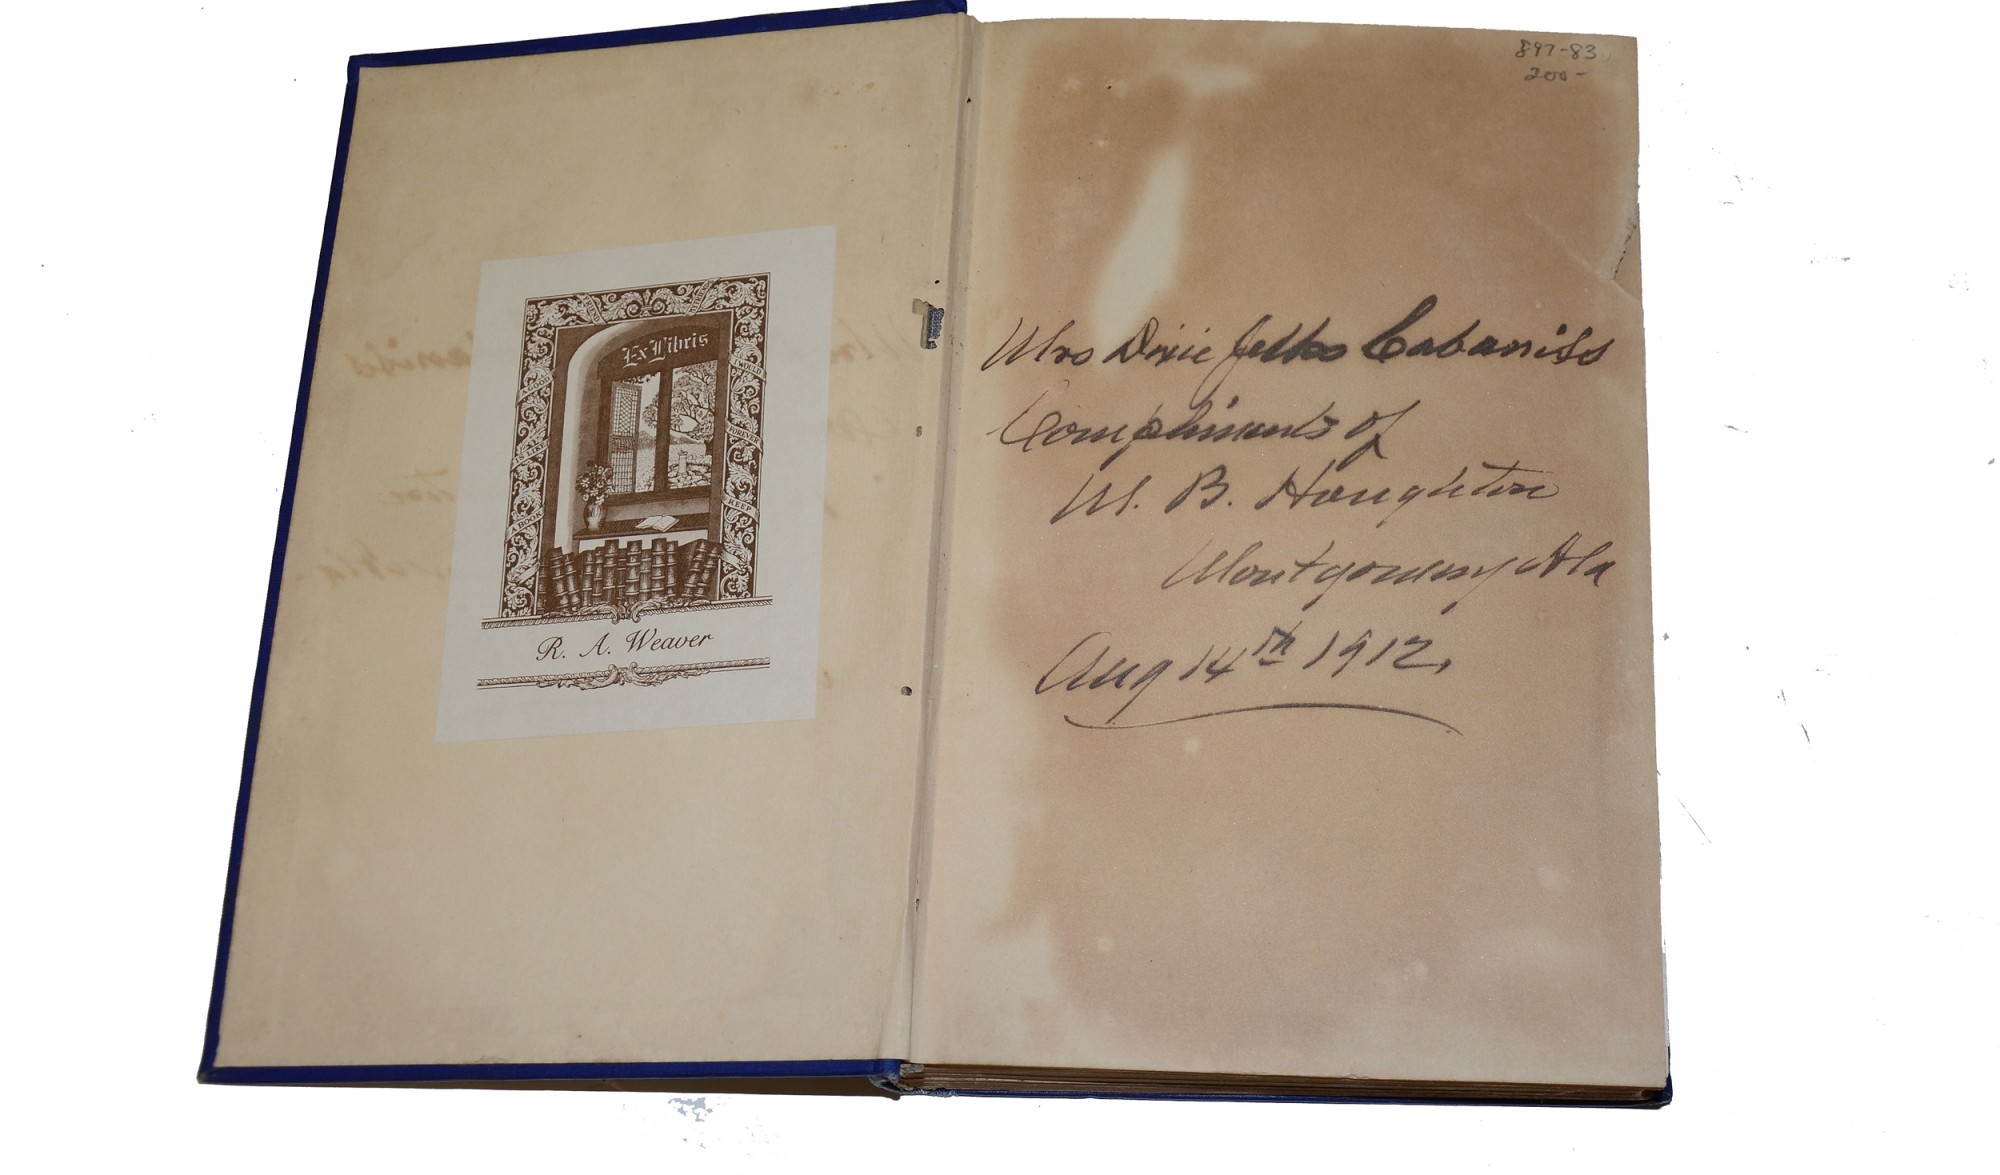 Ex Libris
A GOOD
BOOK
IS LIKE
A BOOK
I WOULD
FOREVER
KEEP
R. A. Weaver
897-83
200-
Mrs Dixie Jelks Cabaniss
Compliments of
M. B. Houghton
Montgomery Ala
Aug 14th 1912.